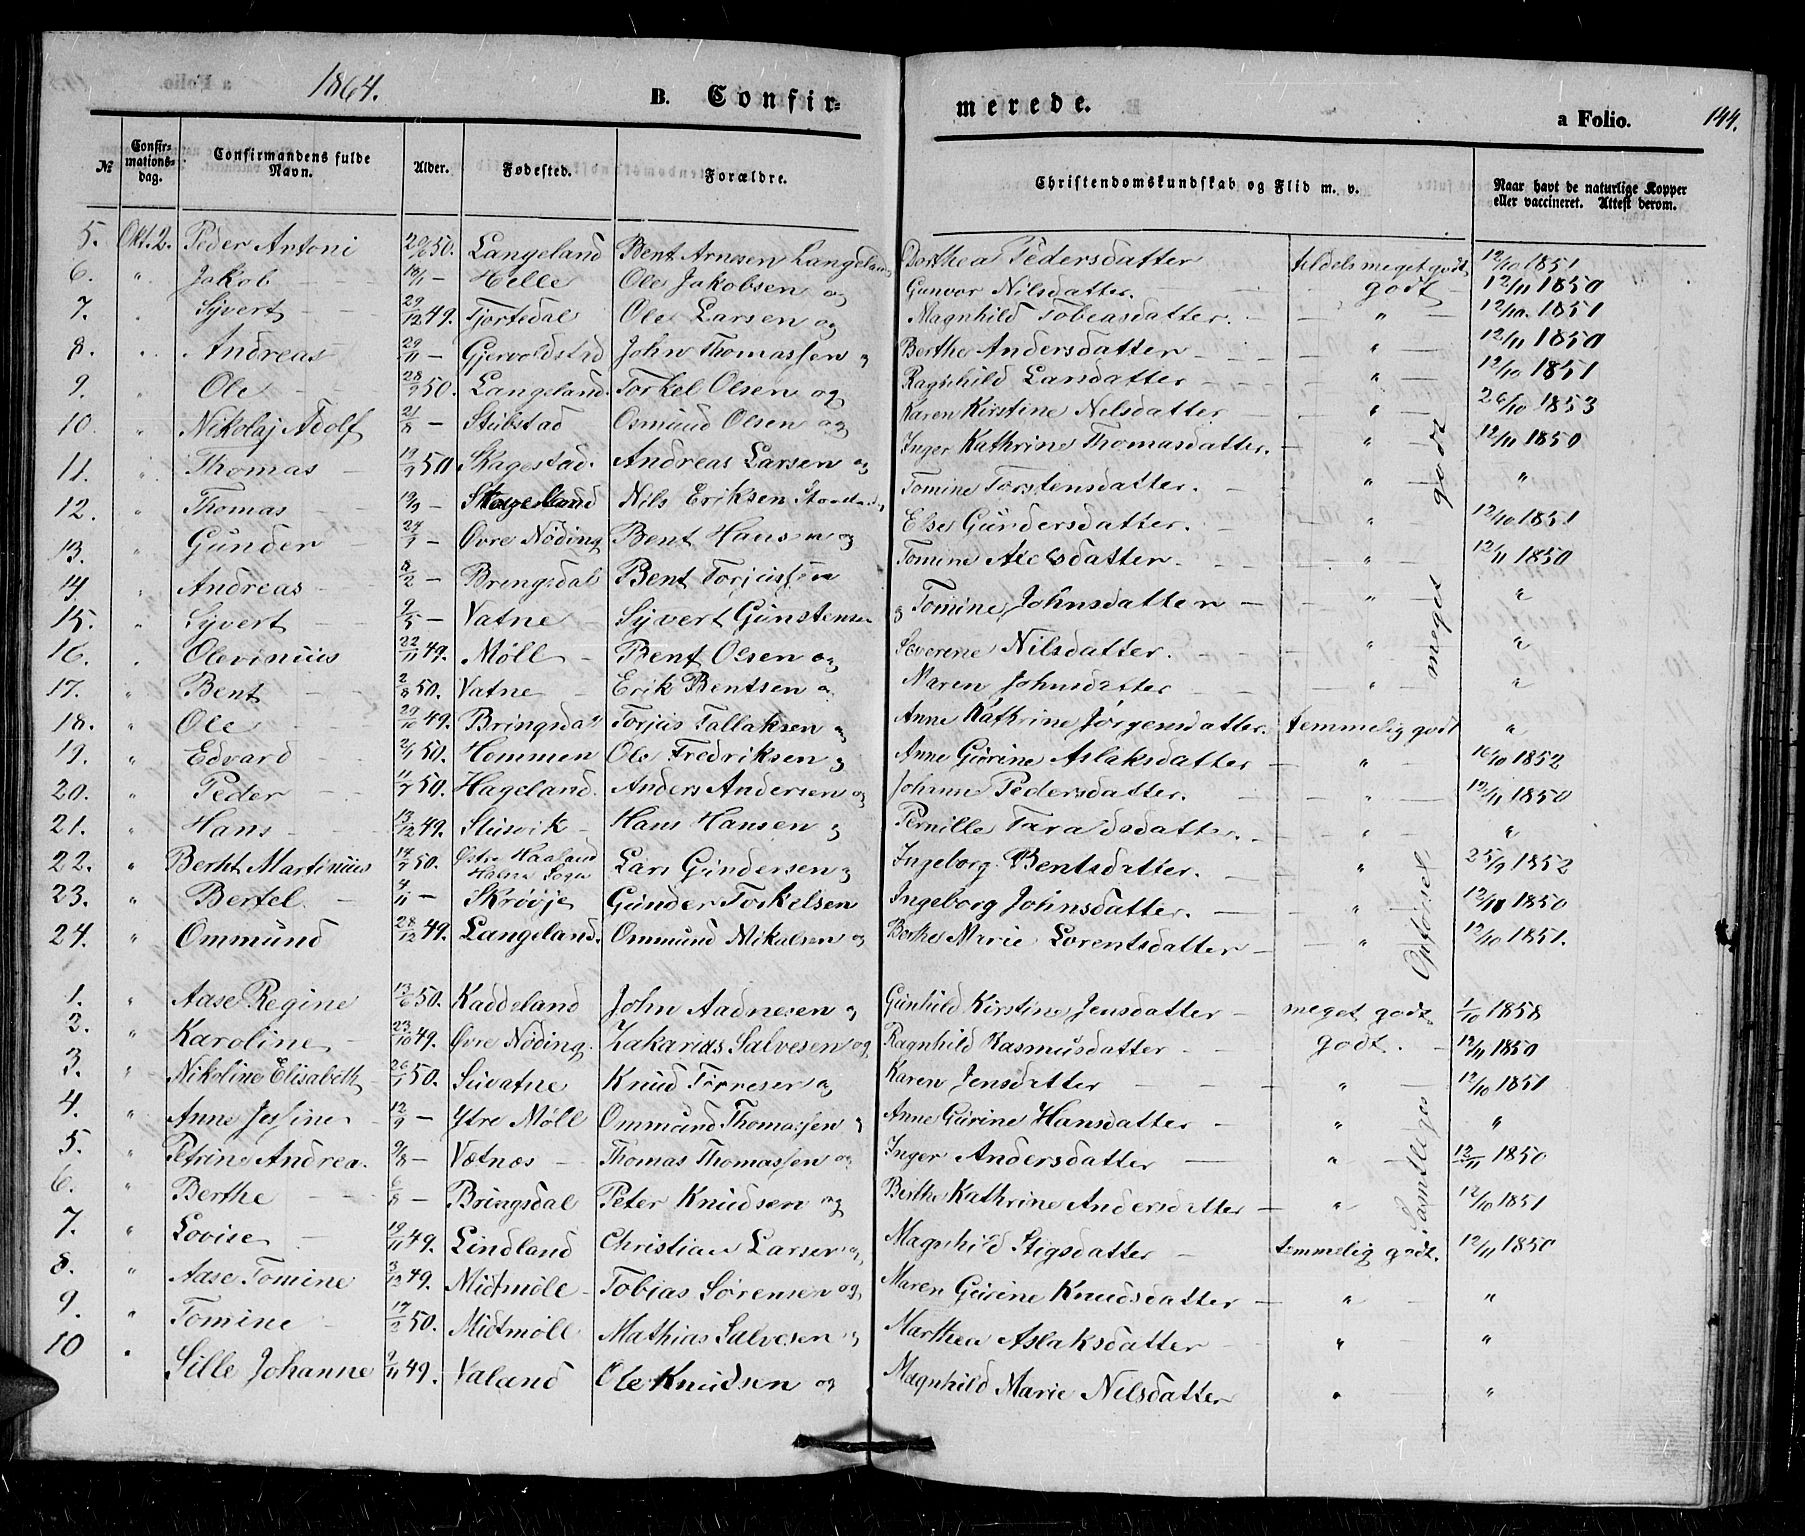 1864.
B. Confirmerede.
a Folio. 144.
№ Confirmationsdag. Confirmandens fulde Navn. Alder. Fødested. Forældre. Christendomskundskab og Flid m. v. Naar havt de naturlige Kopper eller vaccineret. Attest derom.
5. Okt. 2. Peder Antoni 20/6 50. Langeland Bent Arnesen Langeland Dorthea Pedersdatter tildels meget godt, 12/10 1851
6. " Jakob 18/1 — Helle Ole Jakobsen og Gunvor Nilsdatter. godt 12/11 1850
7. " Syvert 29/12 49. Fjortedal Ole Larsen og Magnhild Tobiasdatter. " 12/10. 1851
8. " Andreas 29/11 — Gjervoldstad John Thomassen og Berthe Andersdatter " 12/11 1850
9. " Ole 28/9 50. Langeland. Torkel Olsen og Ragnhild Larsdatter " 12/10 1851
10. " Nikolaj Adolf 21/8 — Stubstad Osmund Olsen og Karen Kirstine Nilsdatter " 26/10 1853
11. " Thomas 50 Skagestad. Andreas Larsen og Inger Kathrine Thomasdatter. " 12/11 1850
12. " Thomas 13/9 — Nils Eriksen Tomine Torstensdatter. " "
13. " Gunder 24/7 — Øvre Nøding Bent Hansen og Else Gundersdatter. " 12/10 1851
14. " Andreas 8/2 — Bringsdal Bent Torjussen Tomine Axelsdatter. " 12/11 1850
15. " Syvert 9/5 — Vatne Syvert Gunstensen og Tomine Johnsdatter " "
16. " Olevinius 22/11 49. Møll Bent Olsen og Severine Nilsdatter. " "
17. " Bent 2/8 50. Vatne Erik Bentsen og Maren Johnsdatter " "
18. " Ole 29/10 49. Bringsdal Torjus Tallaksen og Anne Kathrine Jørgensdatter. temmelig godt "
19. " Edvard 2/1 50. Hommen Ole Fredriksen og Anne Gurine Aslaksdatter " 16/10 1852
20. " Peder 11/7 50. Hageland. Anders Andersen og Johanne Pedersdatter. " 12/11 1850
21. " Hans 13/12 49. Stusvik Hans Hansen og Pernille Taraldsdatter. " "
22. " Berht Martinius 14/9 50. Østre Haaland Halse Sogn Lars Gundersen og Ingeborg Bentsdatter. " 25/9 1852
23. " Bertel. 4/11 — Skrøvje Gunder Torkelsen Ingeborg Johnsdatter. " 12/11 1850
24. " Ommund 28/12 49. Langeland. Ommund Mikalsen og Berthe Marie Lorentsdatter " 12/10 1851.
1. " Aase Regine 13/6 50. Kaddeland John Aadnesen og Gunhild Kirstine Jensdatter meget godt. 1/10 1858
2. " Karoline 23/10 49. Øvre Nøding. Zakarias Salvesen og Ragnhild Rasmusdatter godt. 12/11 1850
3. " Nikoline Elisabeth 26/1 50. Suvatne Knud Tørresen og Karen Jensdatter " 12/10 1851
4. " Anne Jessine 12/9 — Ytre Møll Ommund Thomassen og Anne Gurine Hansdatter " "
5. " Petrine Andrea. 9/8 — Vætnæs Thomas Thomassen og Inger Andersdatter " 12/11 1850
6. " Berthe 6/8 — Bringsdal Peter Knudsen og Berthe Kathrine Andersdatter " 12/10 1851
7. " Lovise 19/11 49. Lindland Christian Larsen og Magnhild Stigsdatter temmelig godt. 12/11 1850
8. " Aase Tomine 3/12 49. Midtmøll Tobias Sørensen og Maren Gurine Knudsdatter " "
9. " Tomine 17/2 50. Midtmøll Mathias Salvesen og Marthea Aslaksdatter " "
10 " Sille Johanne 9/11 49. Valand Ole Knudsen og Magnhild Marie Nilsdatter " "
Samtliges Opførsel meget godt